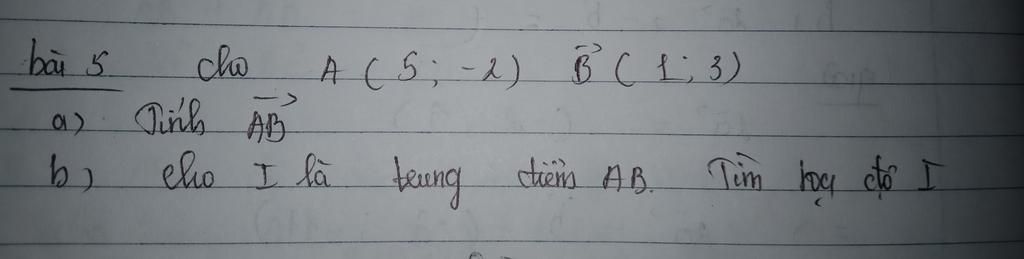 bài 5 cho A ( 5 ; -2 ) B⃗ ( 1 ; 3 )
a) Tính A⃗B⃗
b) cho I là trung điểm AB. Tìm toạ độ I